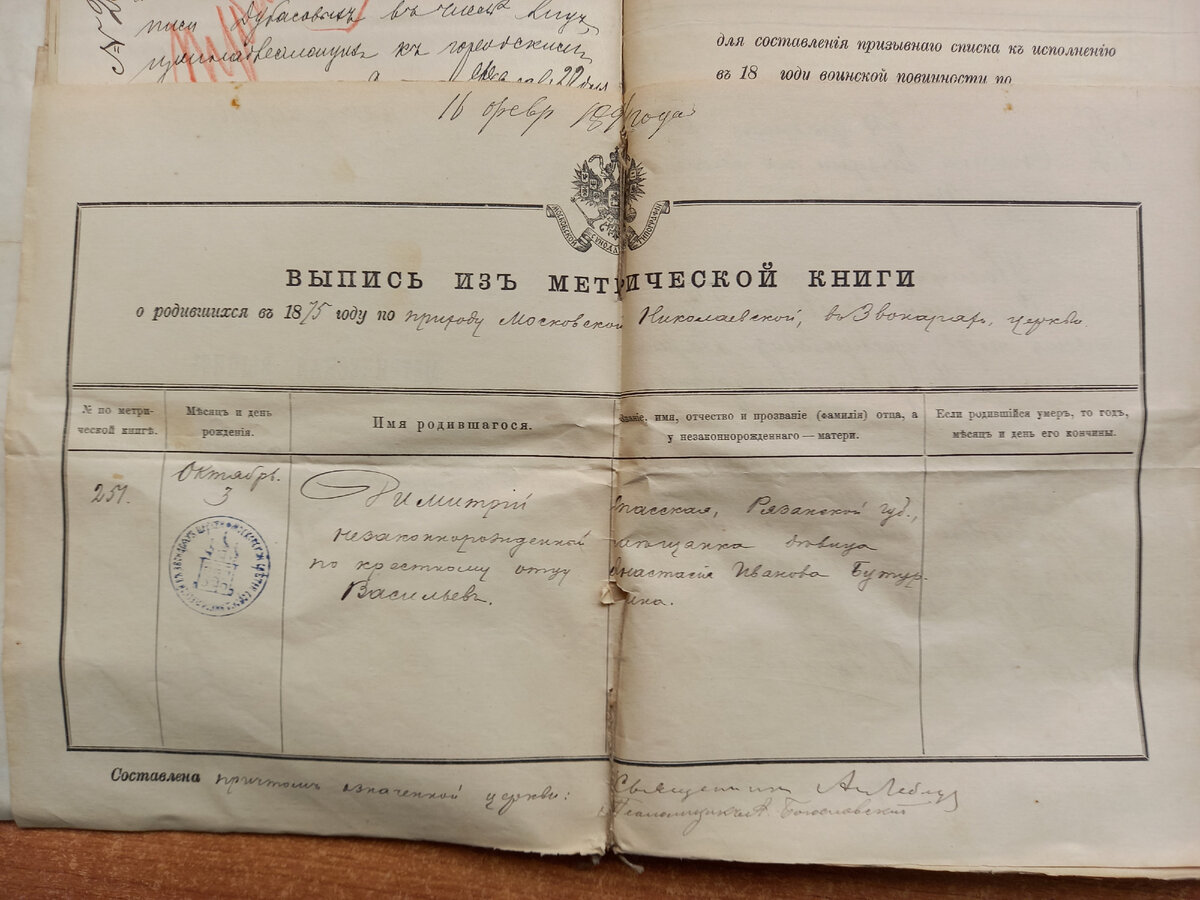 писи Дубасовыхъ въ числѣ лицъ
къ городскимъ
для составленія призывнаго списка къ исполненію
въ 18 годи воинской повинности по
16 февр 1891 года
МОСКОВСКОЙ СѴНОДАЛ ТИПОГРАФІИ
ВЫПИСЬ ИЗЪ МЕТРИЧЕСКОЙ КНИГИ
о родившихся въ 1875 году по приходу Московской Николаевской, въ Звонаряхъ, церкви.
№ по метри-
ческой книгѣ.
Мѣсяцъ и день
рожденія.
Имя родившагося.
Званіе, имя, отчество и прозваніе (фамилія) отца, а
у незаконнорожденнаго — матери.
Если родившійся умеръ, то годъ,
мѣсяцъ и день его кончины.
251.
Октябрь.
3
Димитрій
незаконнорожденной
по крестному отцу
Васильевъ.
пасская, Рязанской губ.,
мѣщанка дѣвица
Анастасія Иванова Бутур-
лина.
Составлена причтомъ означенной церкви:
Священникъ
Псаломщикъ А. Богословскій